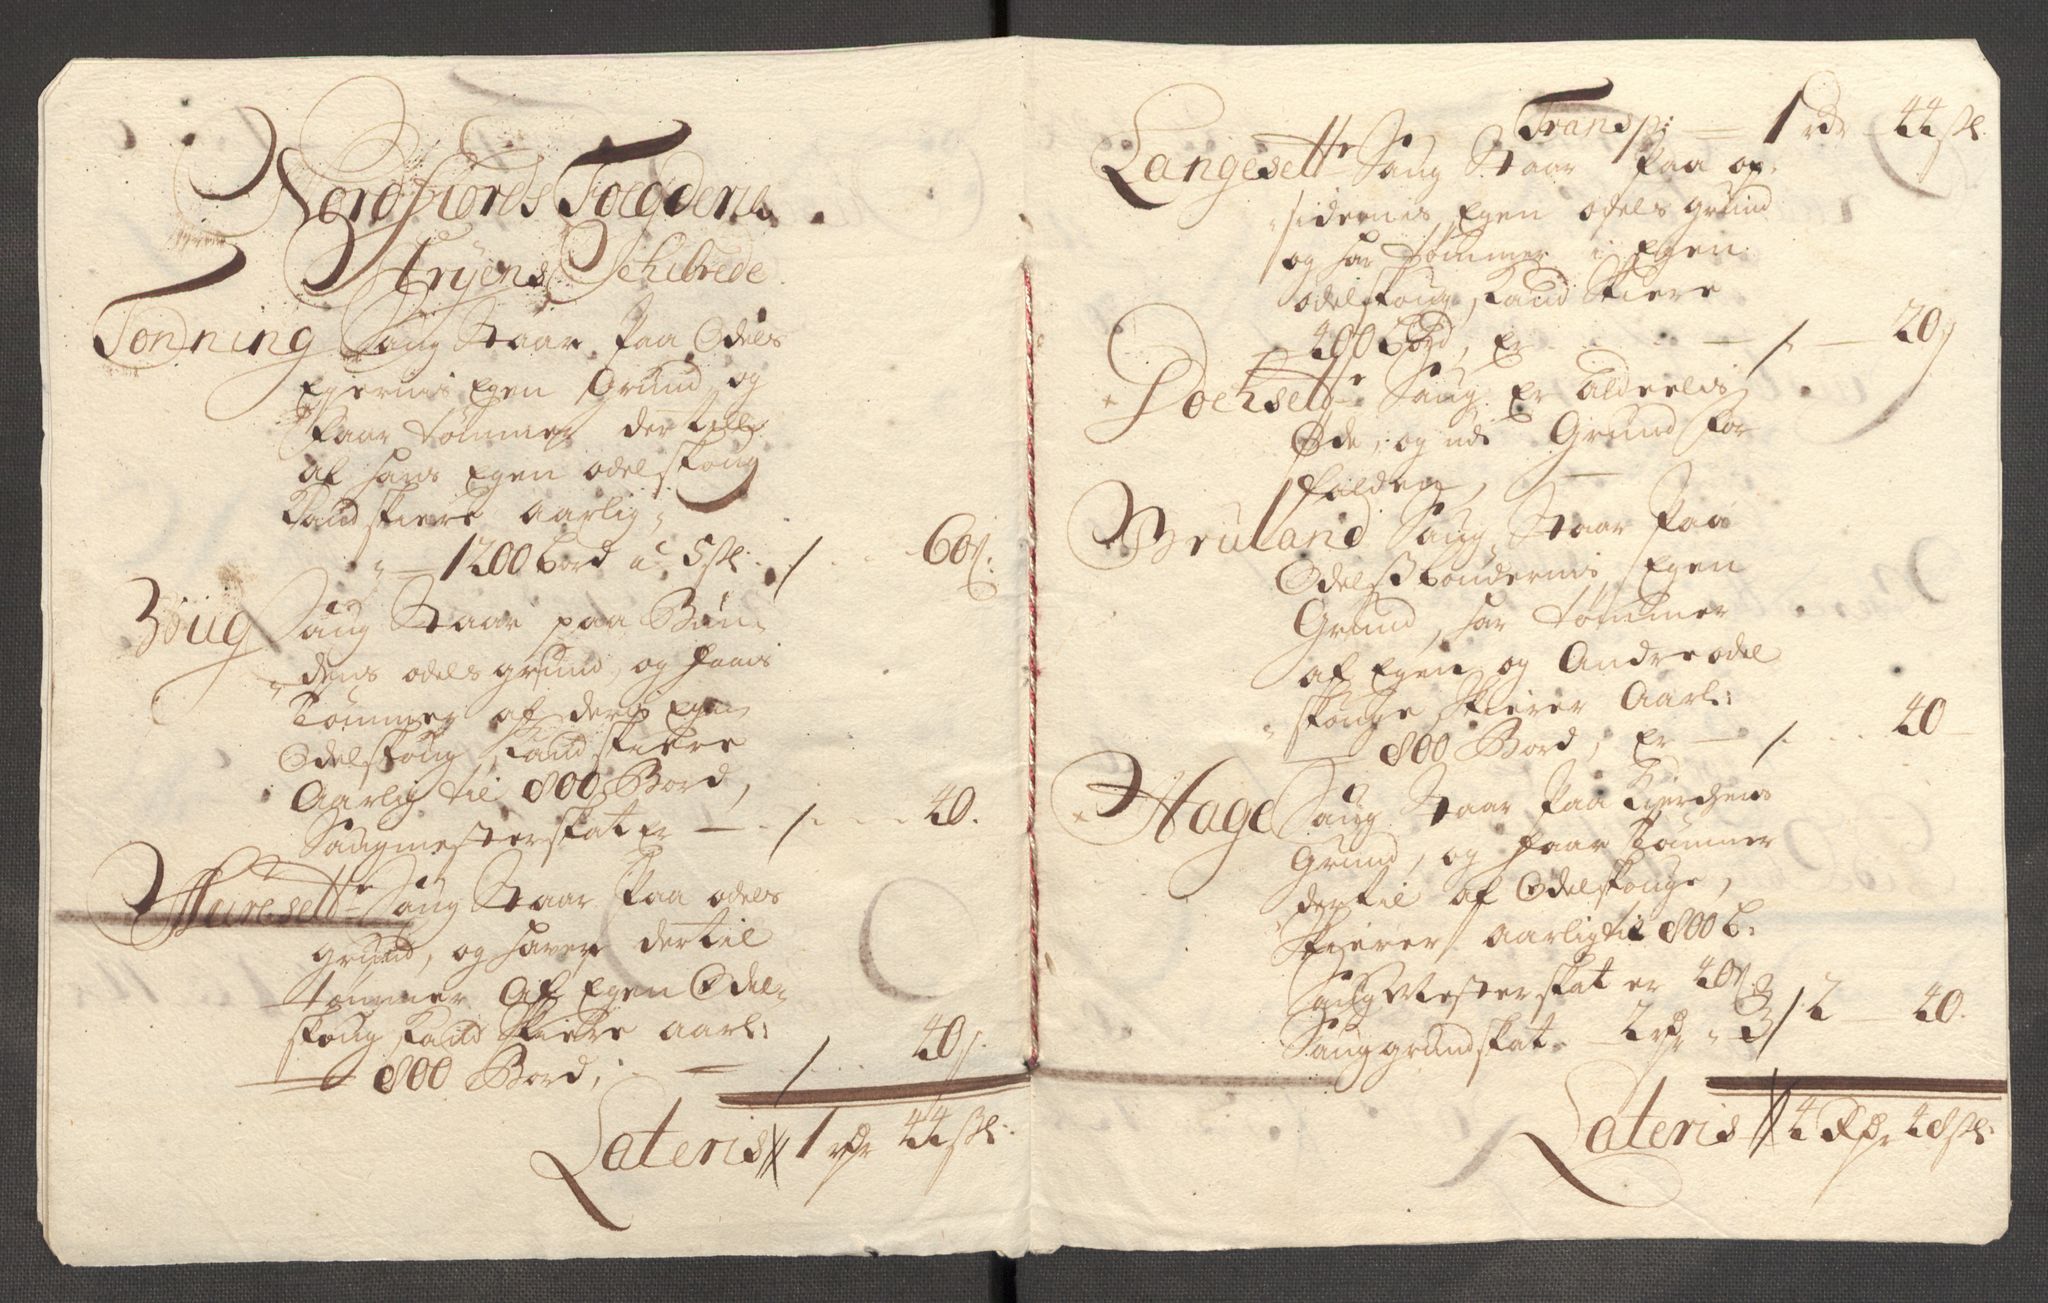 Nordfiords Foegderie
Stryens Schibrede
Tonning Saug Staar paa Odels
Ejernis Egen Grund og
faar tømmer dertill
af hans Egen odelskoug
Kand skiere aarlig
1200 bord a 5 sk: / 60 s:
Boug Saug Staar paa Bøn-
dens odels grund, og faais
Tømmer af ders Egen
Odelskoug, Kand skiere
Aarlig til 800 Bord,
Saugmesterskat er / 40.
Saug Staar Paa odels
grund, og haver dertil
tømmer Af Egen Odel-
skoug Kand skiere aarl:
800 Bord, / 40 s.
Lateris 1 rdr 44 sk:
Transp: 1 rdr 44 sk.
Langesette Saug Staar Paa op-
sidernis Egen odels grund
og har tømmer i Egen
odelskoug, Kand skiere
400 Bord, Er / 20 s
Saug Er Aldeelis
Øde, og udi Grund for-
falden,
Bruland Saug Staar Paa
Odelsbøndernis Egen
Grund, har tømmer
af Egen og Andre odel
skouge skierer Aarl:
800 Bord, Er / 40
Hage Saug Staar Paa Kierchens
Grund, og faar Tømmer
dertil af Odelskouge,
skierer aarlig til 800 b:
Saug Mester skat er 40 s
Sauggrundskat 2 rdr / 2 40.
Lateris 4 Rdr 48 sk: